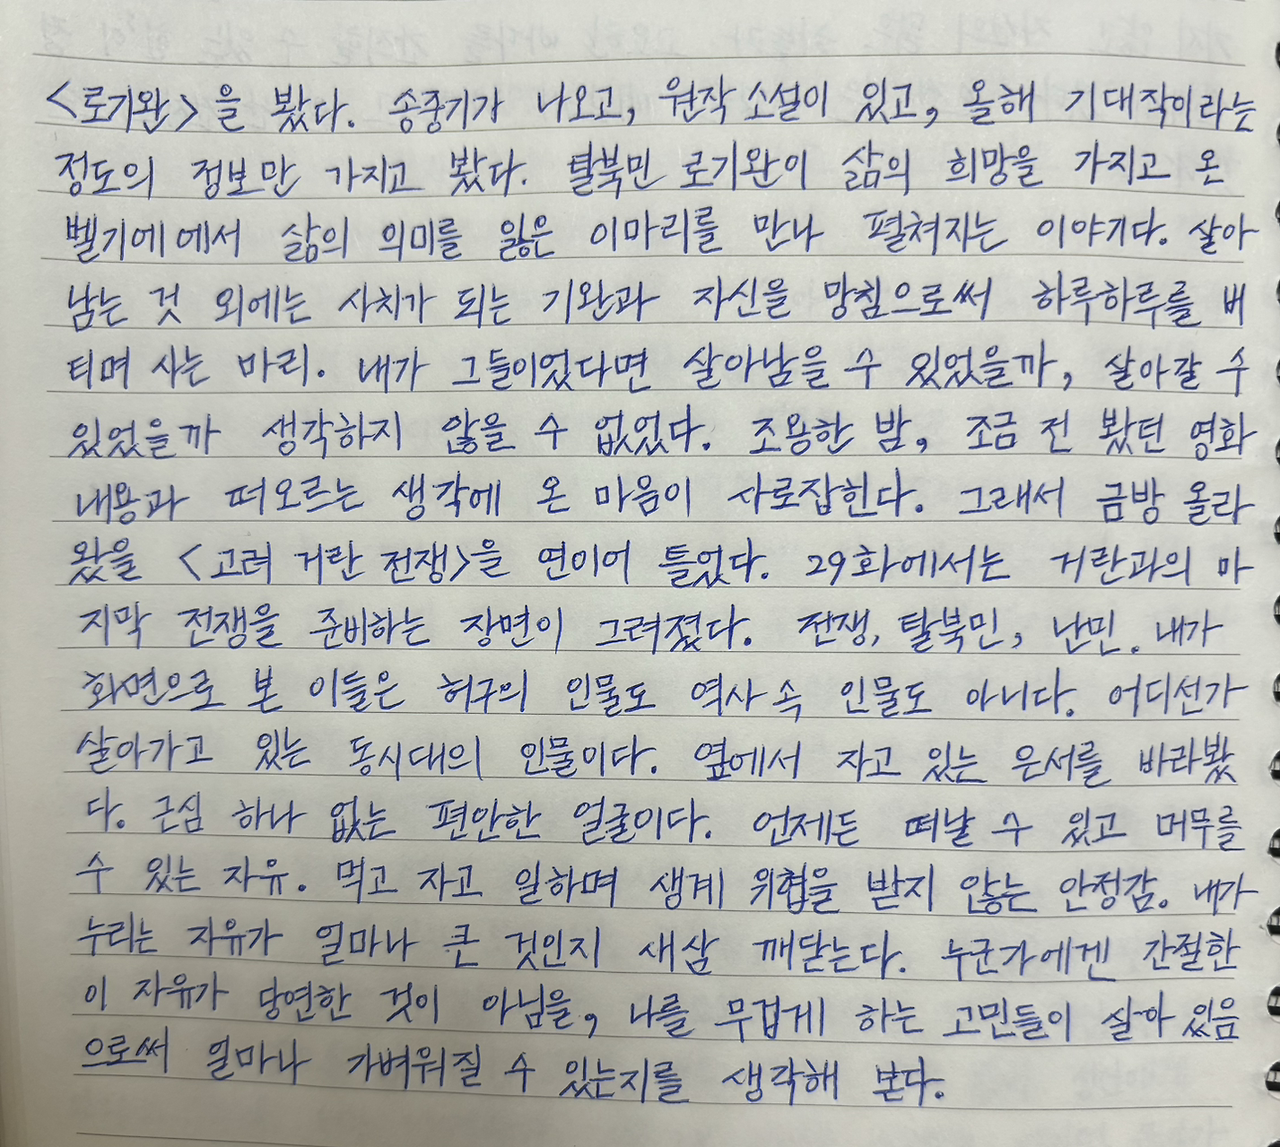 <로기완>을 봤다. 송중기가 나오고, 원작 소설이 있고, 올해 기대작이라는
정도의 정보만 가지고 봤다. 탈북민 로기완이 삶의 희망을 가지고 온
벨기에에서 삶의 의미를 잃은 이마리를 만나 펼쳐지는 이야기다. 살아
남는 것 외에는 사치가 되는 기완과 자신을 망침으로써 하루하루를 버
티며 사는 마리. 내가 그들이었다면 살아남을 수 있었을까, 살아갈 수
있었을까 생각하지 않을 수 없었다. 조용한 밤, 조금 전 봤던 영화
내용과 떠오르는 생각에 온 마음이 사로잡힌다. 그래서 금방 올라
왔을 <고려 거란 전쟁>을 연이어 틀었다. 29화에서는 거란과의 마
지막 전쟁을 준비하는 장면이 그려졌다. 전쟁, 탈북민, 난민. 내가
화면으로 본 이들은 허구의 인물도 역사 속 인물도 아니다. 어디선가
살아가고 있는 동시대의 인물이다. 옆에서 자고 있는 은서를 바라봤
다. 근심 하나 없는 편안한 얼굴이다. 언제든 떠날 수 있고 머무를
수 있는 자유. 먹고 자고 일하며 생계 위협을 받지 않는 안정감. 내가
누리는 자유가 얼마나 큰 것인지 새삼 깨닫는다. 누군가에겐 간절한
이 자유가 당연한 것이 아님을, 나를 무겁게 하는 고민들이 살아 있음
으로써 얼마나 가벼워질 수 있는지를 생각해 본다.